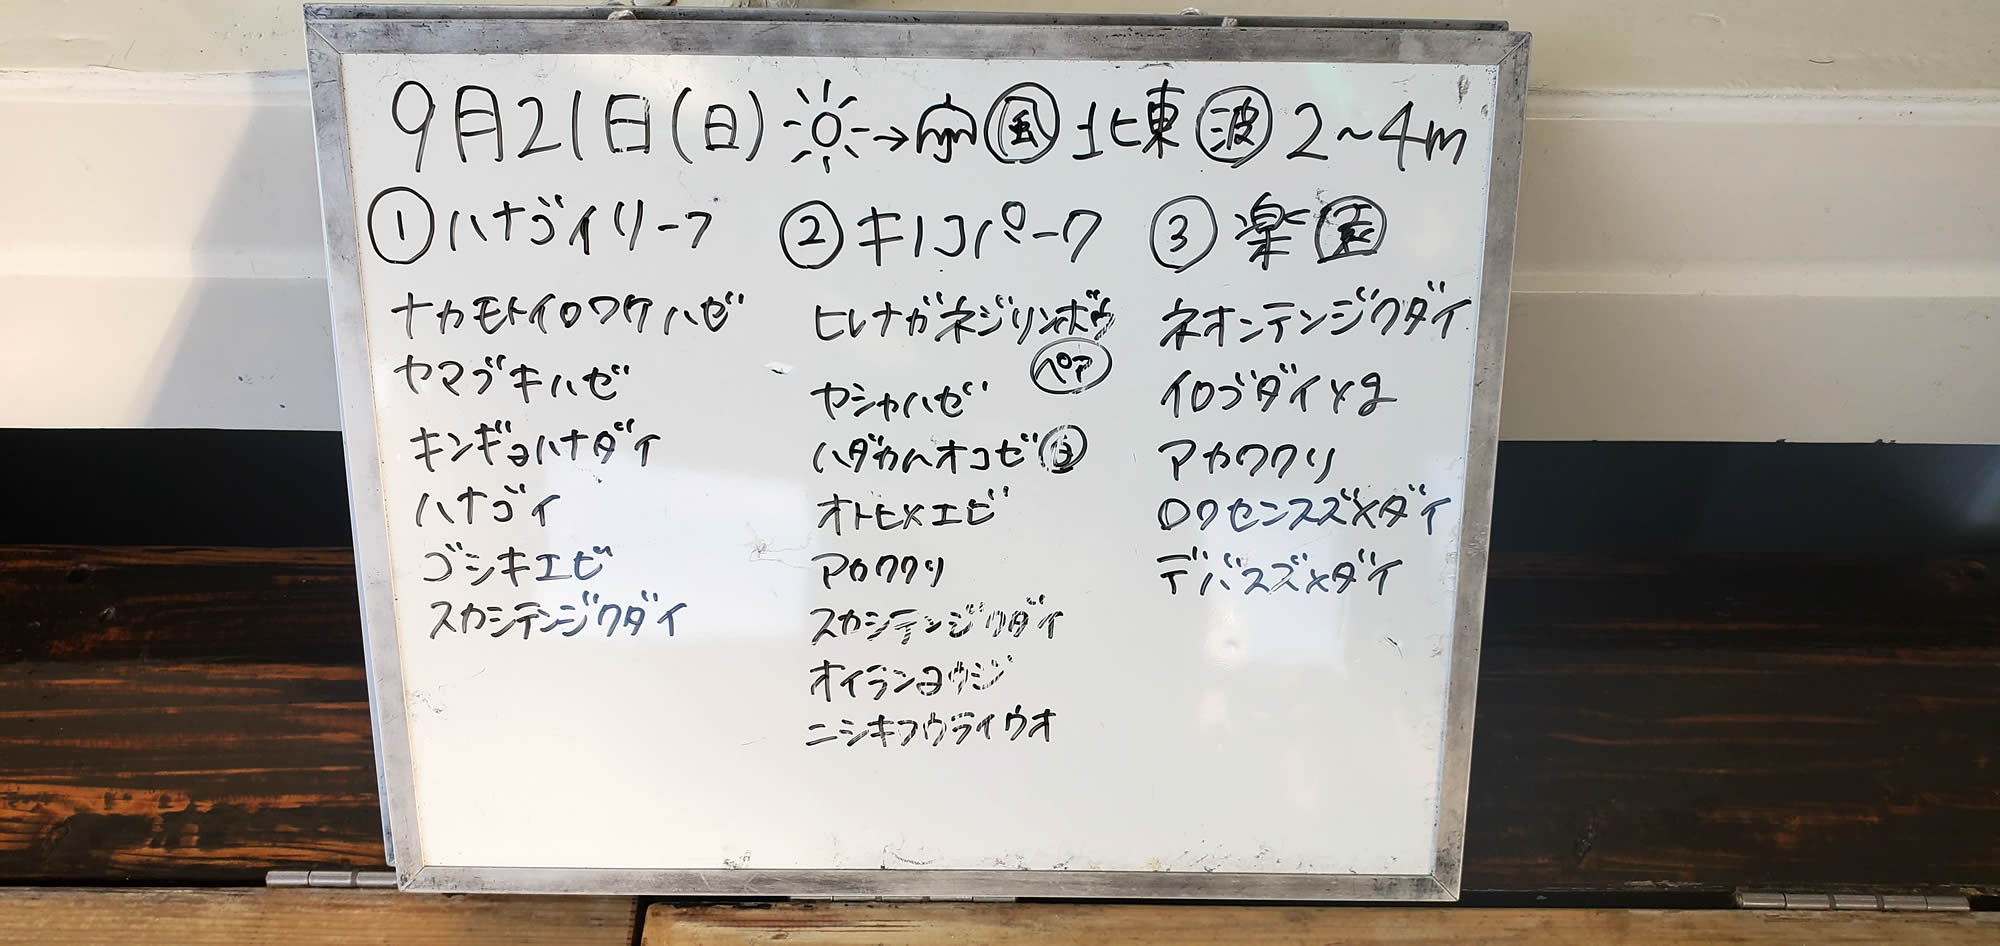 9月21日(日) ☀→☂ 風 北東 波 2~4m
① ハナゴイリーフ
ナカモトイロワケハゼ
ヤマブキハゼ
キンギョハナダイ
ハナゴイ
ゴシキエビ
スカシテンジクダイ
② キノコパーク
ヒレナガネジリンボウ
ペア
ヤシャハゼ
ハダカハオコゼ 白
オトヒメエビ
アカククリ
スカシテンジクダイ
オイランヨウジ
ニシキフウライウオ
③ 楽園
ネオンテンジクダイ
イロブダイyg
アカククリ
ロクセンスズメダイ
デバスズメダイ